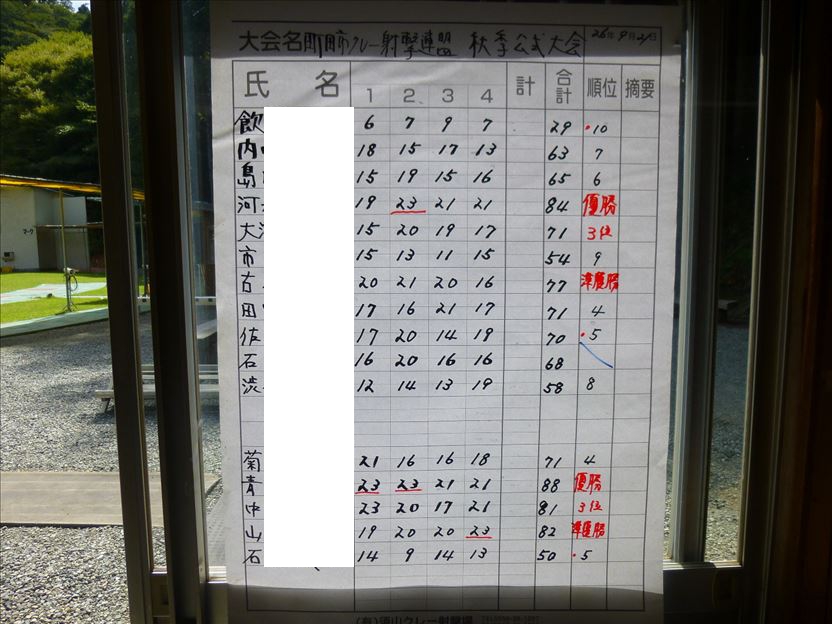 大会名 町田市クレー射撃連盟 秋季公式大会 26年9月21日
氏 名 1 2 3 4 計 合計 順位 摘要
飯 6 7 9 7 29 10
内 18 15 17 13 63 7
島 15 19 15 16 65 6
河 19 23 21 21 84 優勝
大 15 20 19 17 71 3位
市 15 13 11 15 54 9
古 20 21 20 16 77 準優勝
田 17 16 21 17 71 4
佐 17 20 14 19 70 5
石 16 20 16 16 68
渋 12 14 13 19 58 8
菊 21 16 16 18 71 4
青 23 23 21 21 88 優勝
中 23 20 17 21 81 3位
山 19 20 20 23 82 準優勝
石 14 9 14 13 50 5
(有)須山クレー射撃場